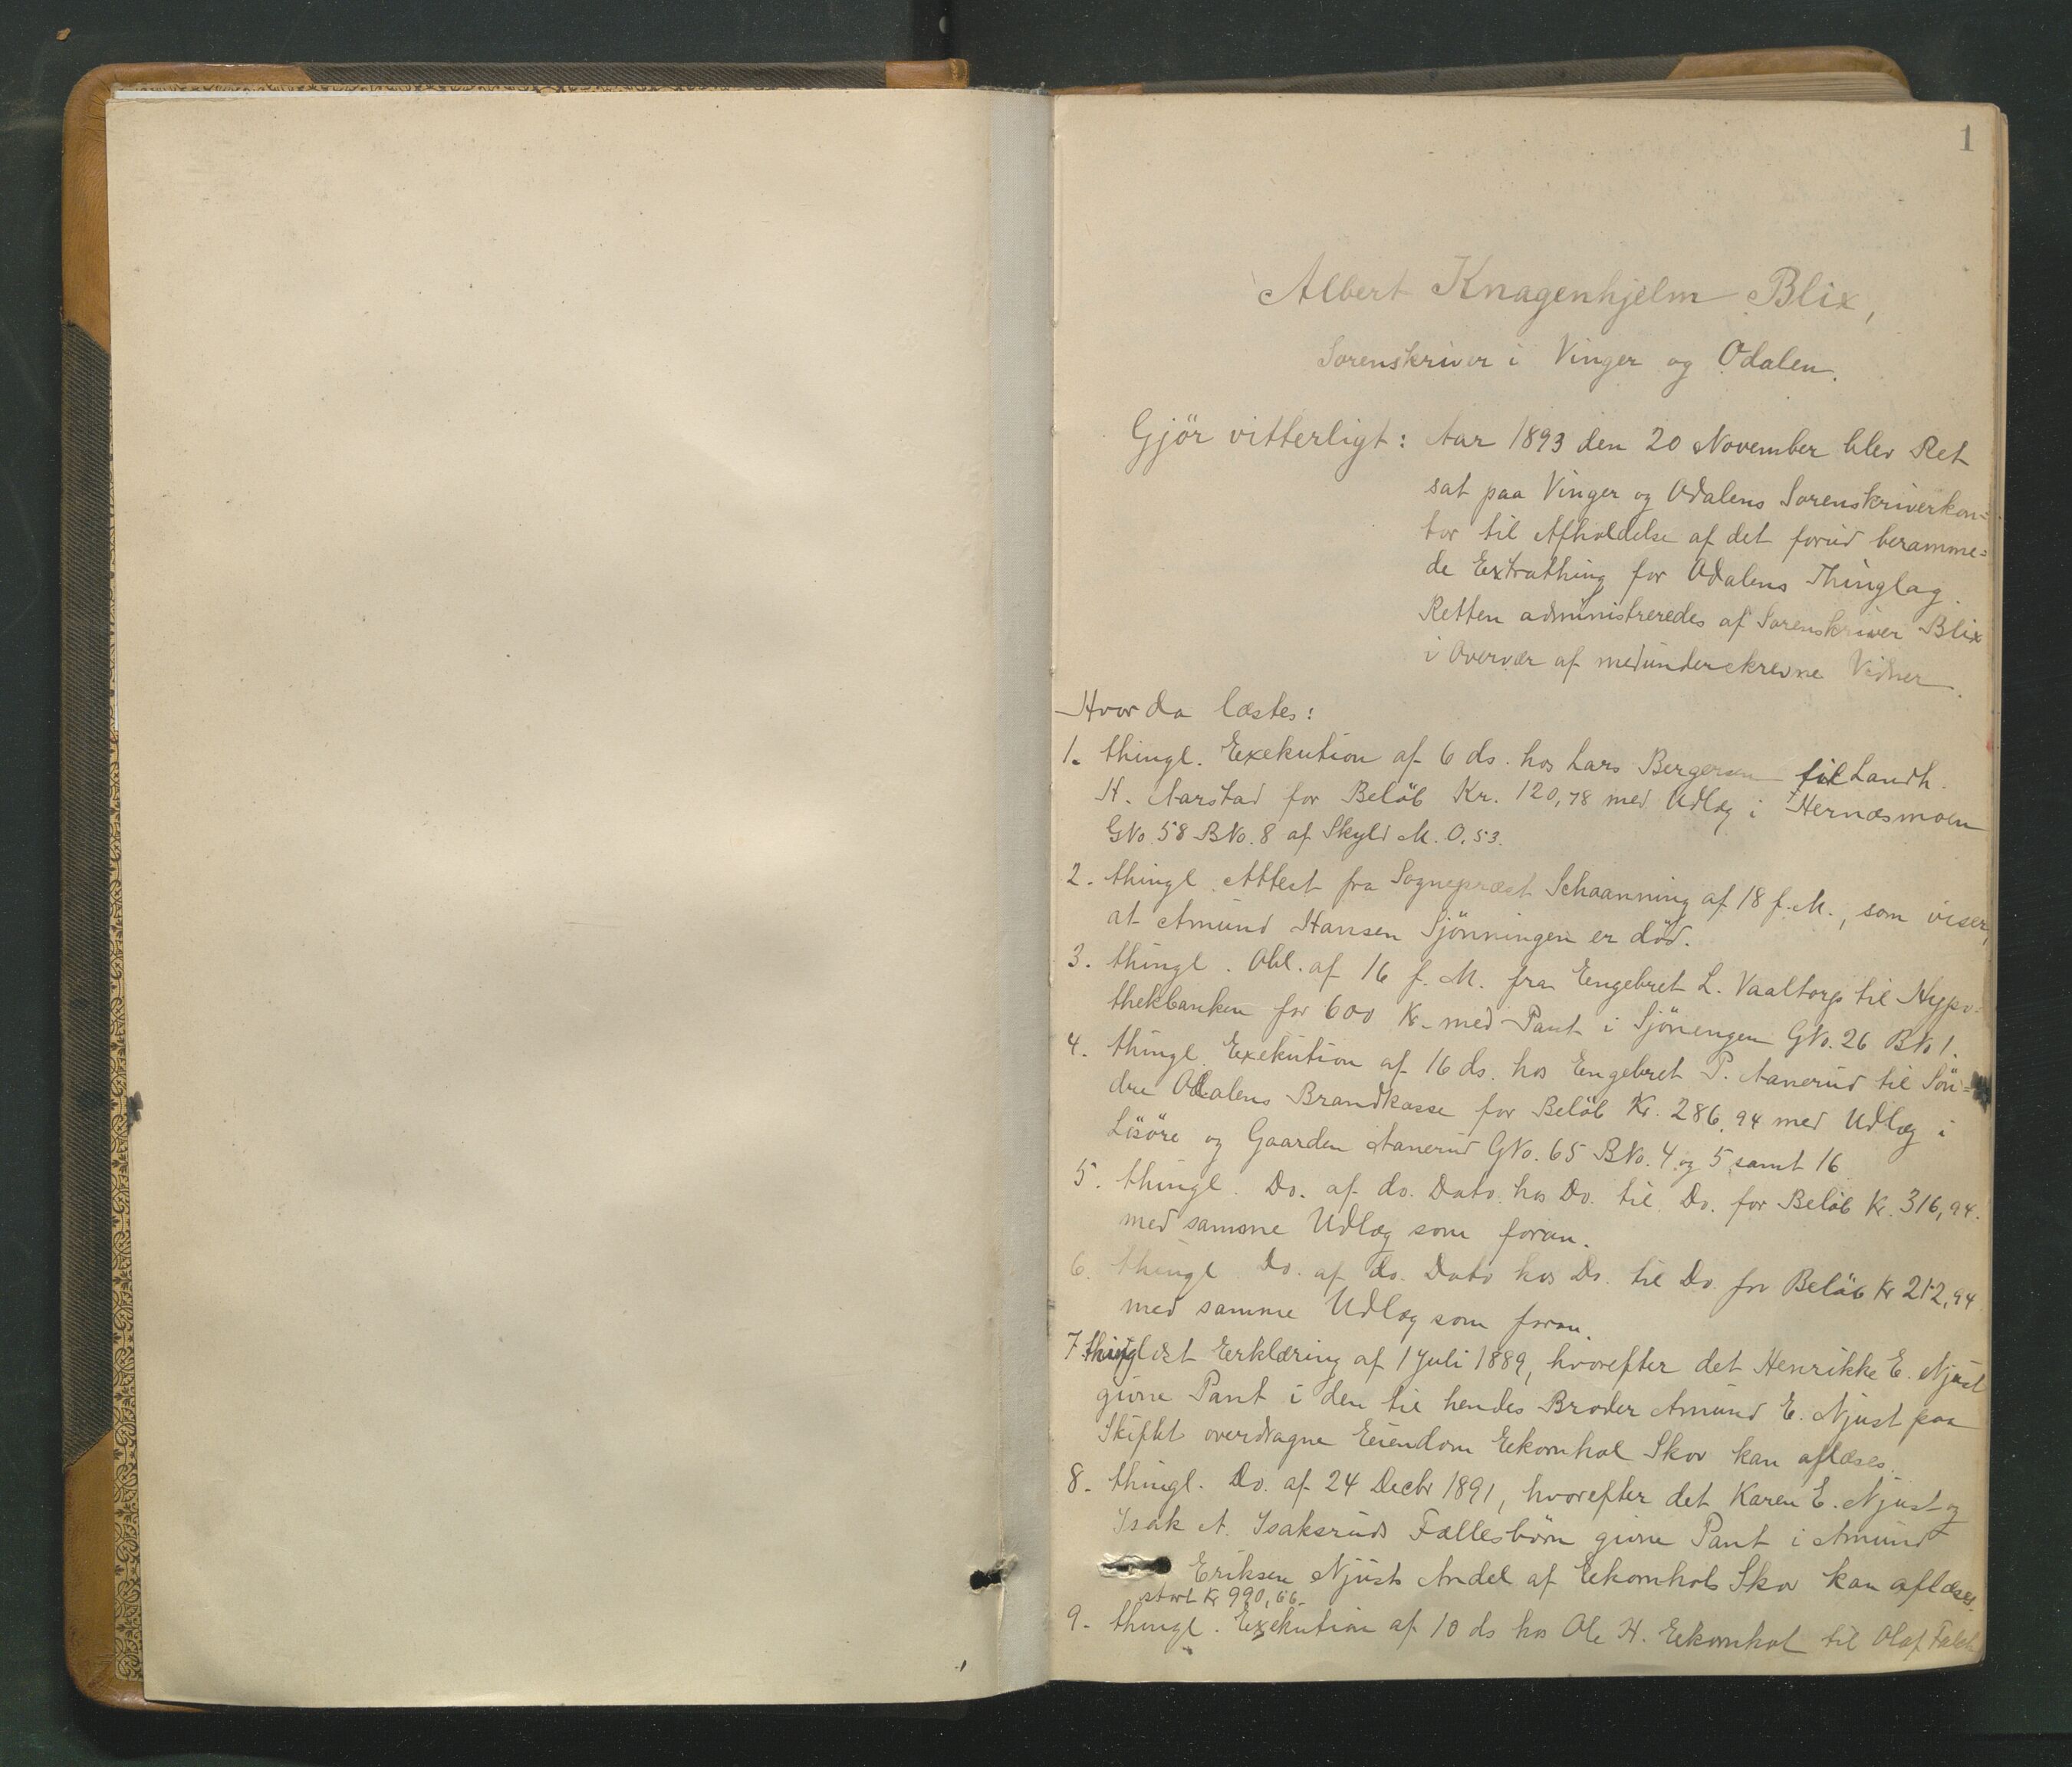 1
Albert Knagenhjelm Blix,
Sorenskriver i Vinger og Odalen.
Gjör vitterligt: Aar 1893 den 20 November blev Ret
sat paa Vinger og Odalens Sorenskriverkon=
tor til Afholdelse af det forud beramme=
de Extrathing for Odalens Thinglag.
Retten administreredes af Sorenskriver Blix
i Overvær af medunderskrevne Vidner.
Hvor da læstes:
1. thingl. Exekution af 6 ds. hos Lars Bergersen til Landh.
H. Aarstad for Beløb Kr. 120,78 med Udlæg i Hernæsmoen
GNo. 58 BNo. 8 af Skyld M. 0.53.
2. thingl. Attest fra Sognepræst Schaanning af 18 f. M., som viser,
at Amund Hansen Sjönningen er död.
3. thingl. Obl. af 16 f. M. fra Engebret L. Vaaltorp til Hypo=
thekbanken for 600 Kr. med Pant i Sjönengen GNo. 26 BNo 1.
4. thingl. Exekution af 16 ds. hos Engebret P. Aanerud til Sön=
dre Odalens Brandkasse for Beløb Kr. 286,94 med Udlæg i
Lösöre og Gaarden Aanerud GNo. 65 BNo. 4 og 5 samt 16
5. thingl. Do. af do. Dato hos Do. til Do. for Beløb Kr. 316,94.
med samme Udlæg som foran.
6. thingl. Do. af do. Dato hos Do. til Do. for Beløb Kr 212,94
med samme Udlæg som foran.
7. thinglæst Erklæring af 1 Juli 1889, hvorefter det Henrikke E. Njust
givne Pant i den til hendes Broder Amund E. Njust paa
Skiftet overdragne Eiendom Ekornhol Skov kan aflæses.
8. thingl. Do. af 24 Decbr 1891, hvorefter det Karen E. Njust og
Isak A. Isaksruds Fællesbörn givne Pant i Amund
Eriksen Njusts Andel af Ekornhols Skov kan aflæses.
stort Kr 990,66.
9. thingl. Exekution af 10 ds hos Ole H. Ekornhol til Olaf Falch